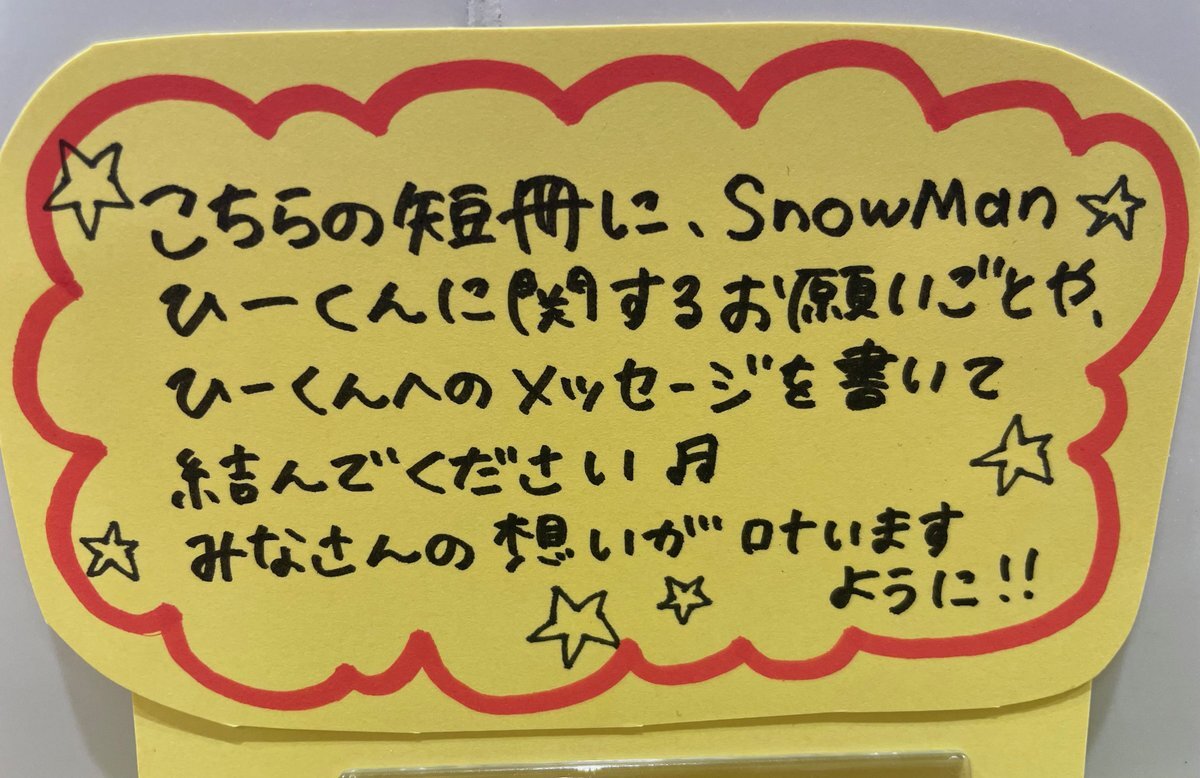 こちらの短冊に、SnowMan
ひーくんに関するお願いごとや、
ひーくんへのメッセージを書いて
結んでください♬
みなさんの想いが叶います
ように!!